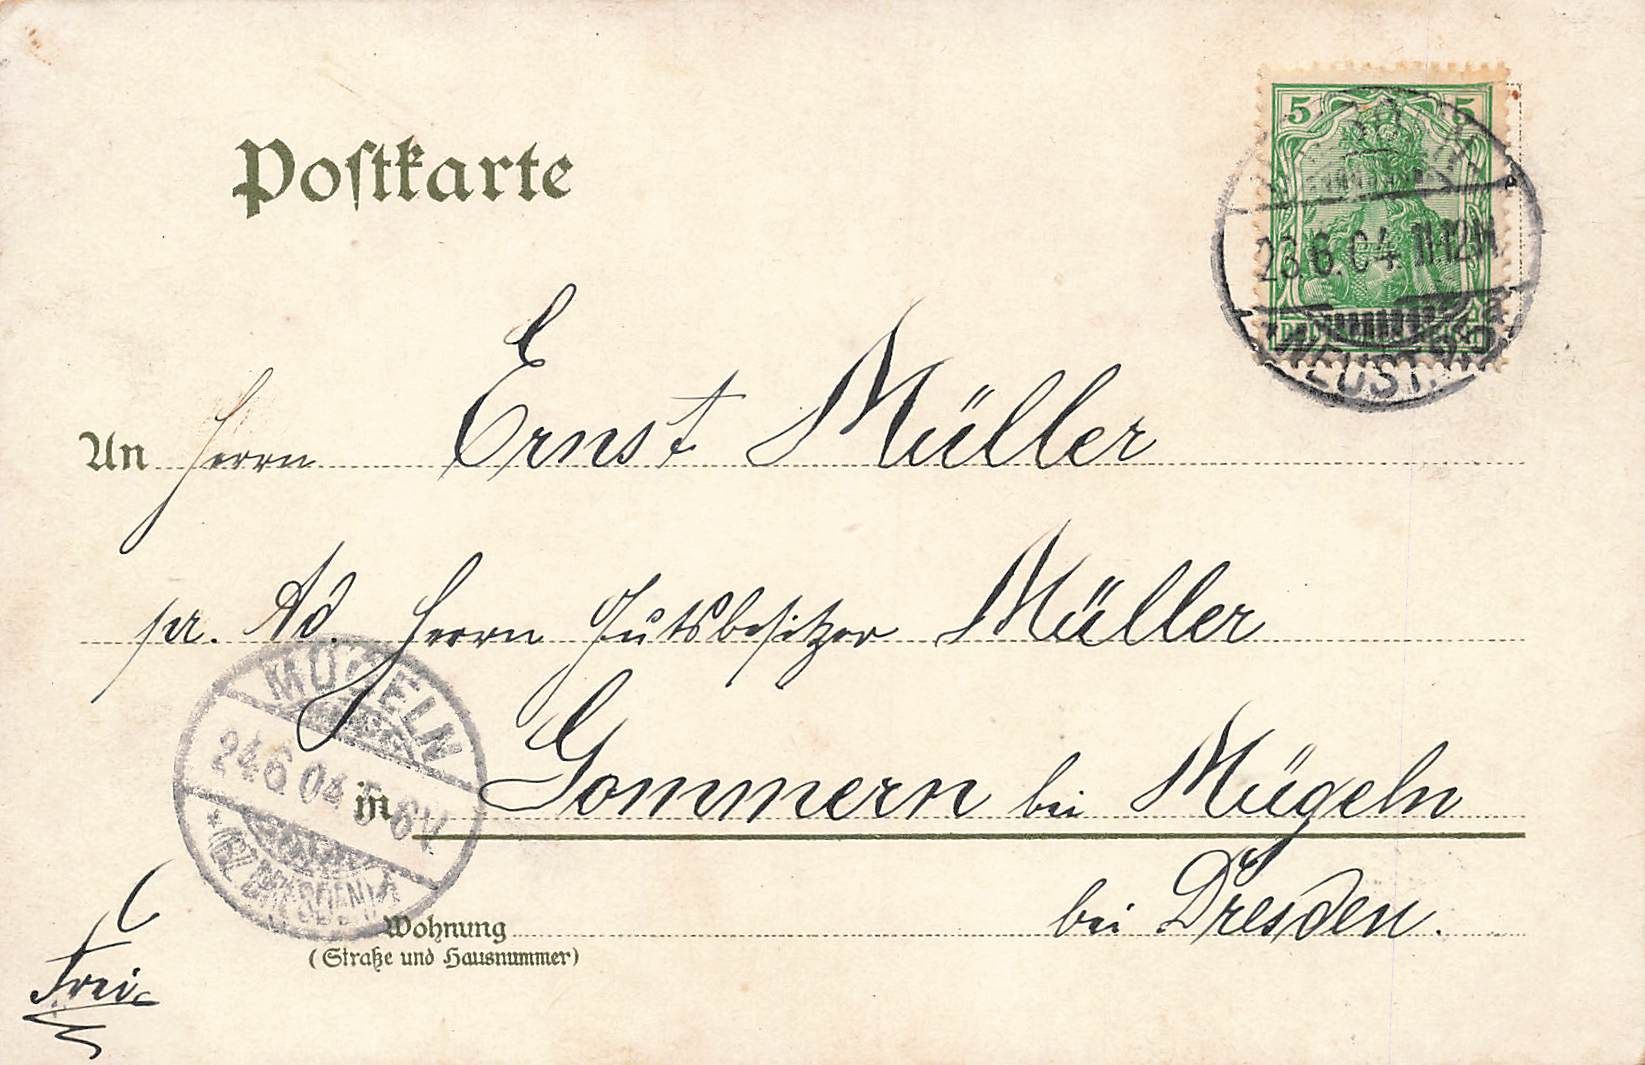 Postkarte
5 5
23.6.04.11-12N
NEUST.
An Herrn Ernst Müller
pr. Ad. Herrn Gutsbesitzer Müller
MÜGELN
24.6.04 5-6V.
(BZ. DRESDEN)
in Gommern bei Mügeln
bei Dresden.
Wohnung
(Straße und Hausnummer)
Frei